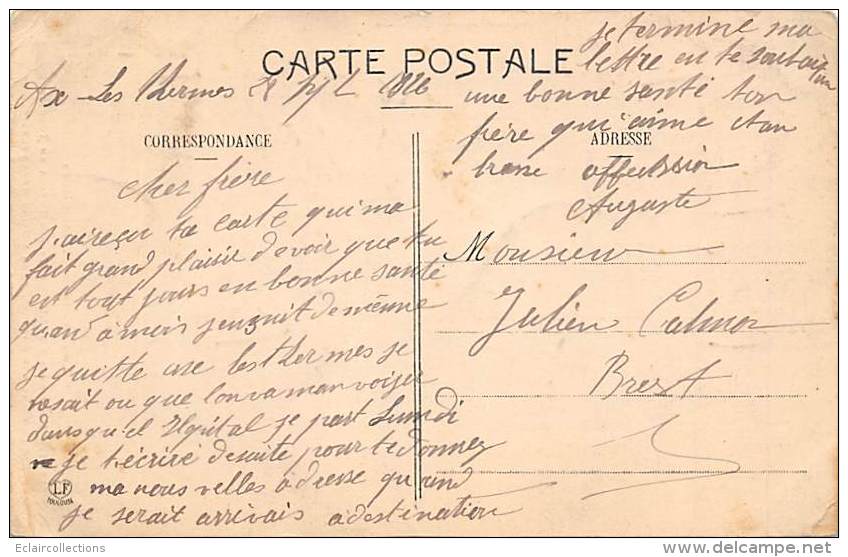 CARTE POSTALE
Ax-Les Thermes
CORRESPONDANCE
cher frère
j'aireçu ta carte qui ma
fait grand plaisir de voir que tu
est tout jours en bonne santé
quan a mois jensuit demême
je quitte axe les thermes je
nesait ou que lonva manvoiyer
dansqu'el Hôpital je part lundi
je técrire desuite pour te donner
ma nous velles adresse quand
je serait arrivais adestination
je termine ma
lettre en te souhaitan
une bonne santé ton
frère qui t'aime
ADRESSE
Auguste
Monsieur
Julien
Brest
LF
TOULOUSE
Eclaircollections
http://www.delcampe.net